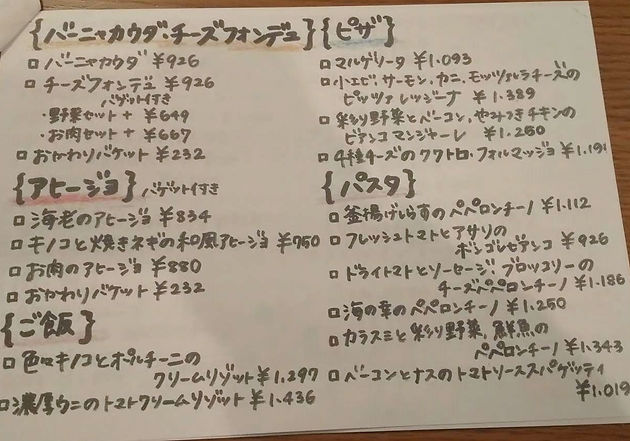 {バーニャカウダ・チーズフォンデュ}
□ バーニャカウダ ¥926
□ チーズフォンデュ ¥926
バゲット付き
・野菜セット + ¥649
・お肉セット + ¥667
□ おかわりバケット ¥232
{アヒージョ} バゲット付き
□ 海老のアヒージョ ¥834
□ キノコと焼きネギの和風アヒージョ ¥750
□ お肉のアヒージョ ¥880
□ おかわりバケット ¥232
{ご飯}
□ 色々キノコとポルチーニの
クリームリゾット ¥1.297
□ 濃厚ウニのトマトクリームリゾット ¥1.436
{ピザ}
□ マルゲリータ ¥1.093
□ 小エビ、サーモン、カニ、モッツァルラチーズの
ピッツァ レッジーナ ¥1.389
□ 彩り野菜とベーコン、やみつきチキンの
ビアンコ マンジャーレ ¥1.250
□ 4種チーズのクワトロ・フォルマッジョ ¥1.191
{パスタ}
□ 釜揚げしらすのペペロンチーノ ¥1.112
□ フレッシュトマトとアサリの
ボンゴレビアンコ ¥926
□ ドライトマトとソーセージ、ブロッコリーの
チーズペペロンチーノ ¥1.186
□ 海の幸のペペロンチーノ ¥1.250
□ カラスミと彩り野菜、鮮魚の
ペペロンチーノ ¥1.343
□ ベーコンとナスのトマトソーススパゲッティ
¥1.019